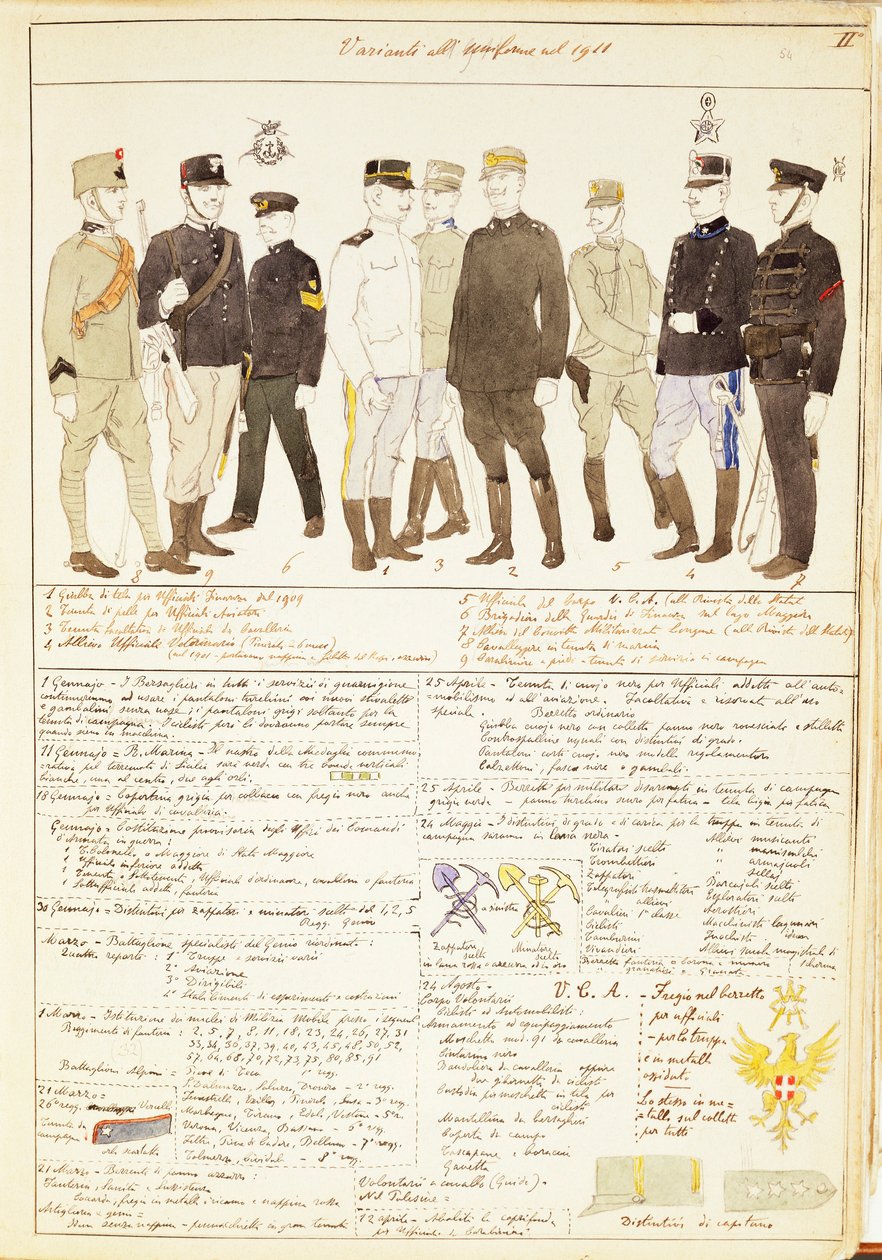 II°
54
Varianti all'Uniforme nel 1911
8 9 6 1 3 2 5 4 7
1 Giubba di tela per Ufficiali Finanza del 1909
2 Tenuta di pelle per Ufficiali Aviatori
3 Tenuta facoltativa di Ufficiali di Cavalleria
4 Allievo Ufficiale Volontario
5 Ufficiale del Corpo V.C.A. (all. Rivista dello Statuto
6 Brigadiere della Guardia di Finanza sul Lago Maggiore
7 Allievo del Convitto Militarizzato Longone (alla Rivista dello Statuto)
8 Cavalleggere in tenuta di marcia
9 Carabiniere a piedi - tenuta di servizio in campagna
1 Gennajo - I Bersaglieri in tutti i servizii di guarnigione
continueranno ad usare i pantaloni turchini coi nuovi stivaletti
e gambalini senza uose; i pantaloni grigi soltanto per la
tenuta di campagna. I ciclisti però la dovranno portare sempre
quando sono in macchina.
11 Gennajo = R. Marina - Il nastro della Medaglia commemo=
=rativa pel terremoto di Sicilia sarà verde con tre bande verticali
bianche, una al centro, due agli orli.
18 Gennajo = Copertina grigia per colbacco con fregio nero anche
per Ufficiali di cavalleria.
Gennajo = Costituzione provvisoria degli Uffici dei Comandi
d'Armata in guerra:
1 T. Colonnello o Maggiore di Stato Maggiore
1 Ufficiale inferiore addetto
1 Tenente o Sottotenente, Ufficiale d'ordinanza, cavalleria o fanteria
1 Sottufficiale addetto, fanteria
30 Gennajo = Distintivi per zappatori e minatori scelti del 1, 2, 5
Regg. Genio
Marzo - Battaglione specialisti del Genio riordinato:
Quattro reparti: 1° Truppe e servizi varii
2° Aviazione
3° Dirigibili
4° Stabilimento di esperimenti e costruzioni
1 Marzo - Istituzione dei nuclei di Milizia Mobile presso i seguenti
Reggimenti di fanteria: 2, 5, 7, 8, 11, 18, 23, 24, 26, 27, 31
33, 34, 36, 37, 39, 40, 43, 45, 48, 50, 52,
57, 64, 68, 70, 72, 73, 75, 80, 85, 91
(32)
Battaglioni Alpini = Pieve di Teco 1° regg.
S. Dalmazzo, Saluzzo, Dronero - 2° regg.
Fenestrelle, Exilles, Pinerolo, Susa - 3° regg.
Morbegno, Tirano, Edolo, Vestone - 5° r.
Verona, Vicenza, Bassano - 6° regg
Feltre, Pieve di Cadore, Belluno - 7° regg.
Tolmezzo, Cividale - 8° regg.
21 Marzo =
26° regg. Vercelli
Tenuta da
campagna:
orlo scarlatto
21 Marzo - Berretti di panno azzurro:
Fanteria, Sanità e Sussistenza
Coccarda, fregio in metallo, ricamo e nappina rossa
Artiglieria e genio =
Idem senza nappina - pennacchietti in gran tenuta
25 Aprile - Tenuta di cuojo nero per Ufficiali addetti all'auto=
=mobilismo ed all'aviazione. Facoltativa e riservata all'uso
speciale. Berretto ordinario
Giubba cuojo nero con colletto panno nero rovesciato e stellette
Controspalline uguali con distintivi di grado.
Pantaloni corti cuojo nero modello regolamentare
Calzettoni, fasce nere o gambali.
25 Aprile - Berretti per militari disarmati in tenuta di campagna
grigio verde - panno turchino scuro per fatica - tela bigia per fatica
24 Maggio - I distintivi di grado e di carica per la truppa in tenuta di
campagna saranno in lana nera -
Tiratori scelti
Trombettieri
Zappatori
Telegrafisti trasmettitori
" allievi
Cavalieri 1° classe
Ciclisti
Tamburini
Vivandieri
Allievi musicanti
" maniscalchi
" armajuoli
" sellai
Barcajoli scelti
Esploratori scelti
Aerostieri
Macchinisti lagunari
Fuochisti idem
Allievi scuola magistrale di scherma
Berretto fanteria = Corona e numero
" granatieri = Granata
a sinistra
Zappatore
scelto
Minatore
scelto
in lana rossa o azzurra od in oro
24 Agosto -
Corpo Volontari
Ciclisti ed Automobilisti:
Armamento ed equipaggiamento
Moschetto mod. 91 da cavalleria
Cinturino nero
Bandoliera da cavalleria oppure
due giberne da ciclisti
Custodia per moschetto in tela per
ciclisti
Mantellina da bersaglieri
Coperta da campo
Tascapane e boraccia
Gavetta
V.C.A. - Fregio nel berretto
per ufficiali
- per la truppa
è in metallo
ossidato
Lo stesso in me=
=tallo sul colletto
per tutti
Volontari a cavallo (Guide) -
Nel Polesine =
12 aprile - Aboliti le coprifonda
per Ufficiali dei Carabinieri
Distintivi di capitano